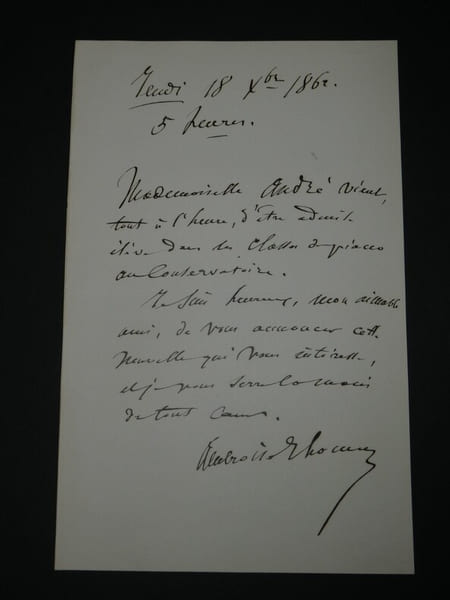 Jeudi 18 Xbre 1862.
5 heures.
Mademoiselle André vient,
tout à l'heure, d'être admise
élève dans les classes de piano
au Conservatoire.
Je suis heureux, mon aimable
ami, de vous annoncer cette
nouvelle qui vous intéresse,
et je vous serre la main
de tout cœur.
Ambroise Thomas